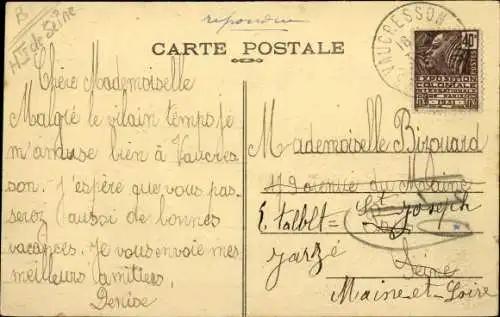 B
Hts de Seine
repondu
CARTE POSTALE
VAUCRESSON
18
40c
EXPOSITION
COLONIALE
INTERNATIONALE
PARIS
1931
Chère Mademoiselle
Malgré le vilain temps je
m'amuse bien à Vaucres
son. J'espère que vous pas-
serez aussi de bonnes
vacances. Je vous envoie mes
meilleurs amitiers.
Denise
Mademoiselle Bizouard
avenue du Maine
E. talblt = St Joseph
Jarzé
Seine
Maine-et-Loire